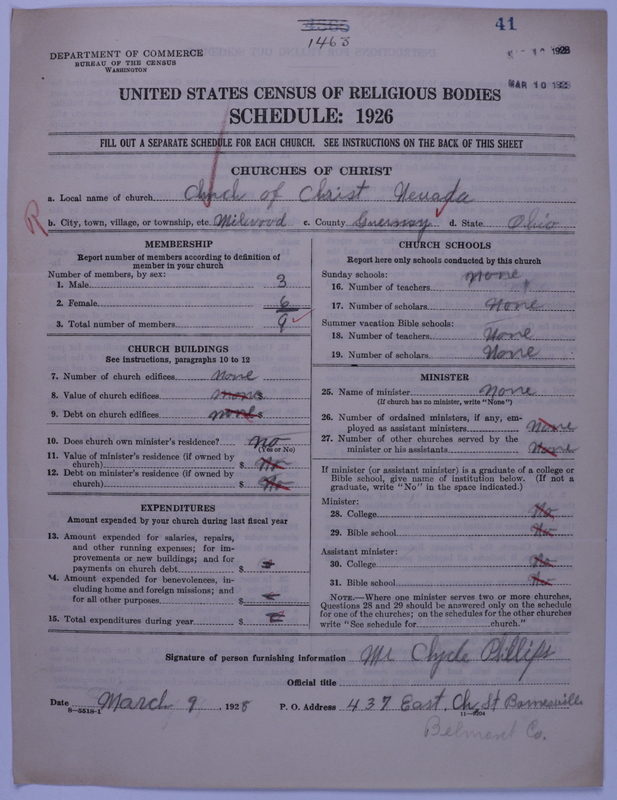 1463
41
MAR 10 1928
DEPARTMENT OF COMMERCE
BUREAU OF THE CENSUS
WASHINGTON
UNITED STATES CENSUS OF RELIGIOUS BODIES
SCHEDULE: 1926
FILL OUT A SEPARATE SCHEDULE FOR EACH CHURCH. SEE INSTRUCTIONS ON THE BACK OF THIS SHEET
CHURCHES OF CHRIST
a. Local name of church Church of Christ Nevada
R b. City, town, village, or township, etc. Milwood c. County Guernsey d. State Ohio
MEMBERSHIP
Report number of members according to definition of
member in your church
Number of members, by sex:
1. Male 3
2. Female 6
3. Total number of members 9
CHURCH BUILDINGS
See instructions, paragraphs 10 to 12
7. Number of church edifices none
8. Value of church edifices none
9. Debt on church edifices none
10. Does church own minister's residence? no
(Yes or No)
11. Value of minister's residence (if owned by
church) $ No
12. Debt on minister's residence (if owned by
church) $ No
EXPENDITURES
Amount expended by your church during last fiscal year
13. Amount expended for salaries, repairs,
and other running expenses; for im-
provements or new buildings; and for
payments on church debt $
14. Amount expended for benevolences, in-
cluding home and foreign missions; and
for all other purposes $
15. Total expenditures during year $
CHURCH SCHOOLS
Report here only schools conducted by this church
Sunday schools: None
16. Number of teachers
17. Number of scholars None
Summer vacation Bible schools:
18. Number of teachers None
19. Number of scholars None
MINISTER
25. Name of minister None
(If church has no minister, write "None")
26. Number of ordained ministers, if any, em-
ployed as assistant ministers None
27. Number of other churches served by the
minister or his assistants None
If minister (or assistant minister) is a graduate of a college or
Bible school, give name of institution below. (If not a
graduate, write "No" in the space indicated.)
Minister:
28. College No
29. Bible school No
Assistant minister:
30. College No
31. Bible school No
NOTE.—Where one minister serves two or more churches,
Questions 28 and 29 should be answered only on the schedule
for one of the churches; on the schedules for the other churches
write "See schedule for church."
Signature of person furnishing information Mr Clyde Phillips
Official title
Date March 9, 1928 P. O. Address 437 East Ch St Barnesville
8—5518-1 11—9204
Belmont Co.